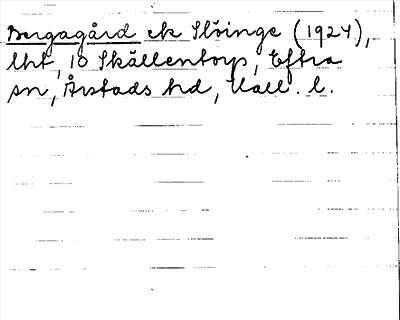 Bergagård ek Slöinge (1924),
lht, 10 Skällentorp, Eftra
sn, Årstads hd, Hall. l.